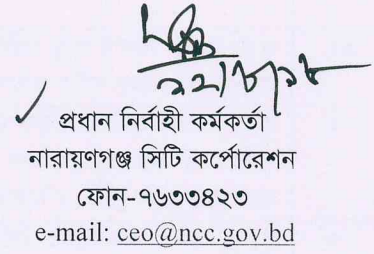 প্রধান নির্বাহী কর্মকর্তা
নারায়ণগঞ্জ সিটি কর্পোরেশন
ফোন-৭৬৩৩৪২৩
e-mail: ceo@ncc.gov.bd